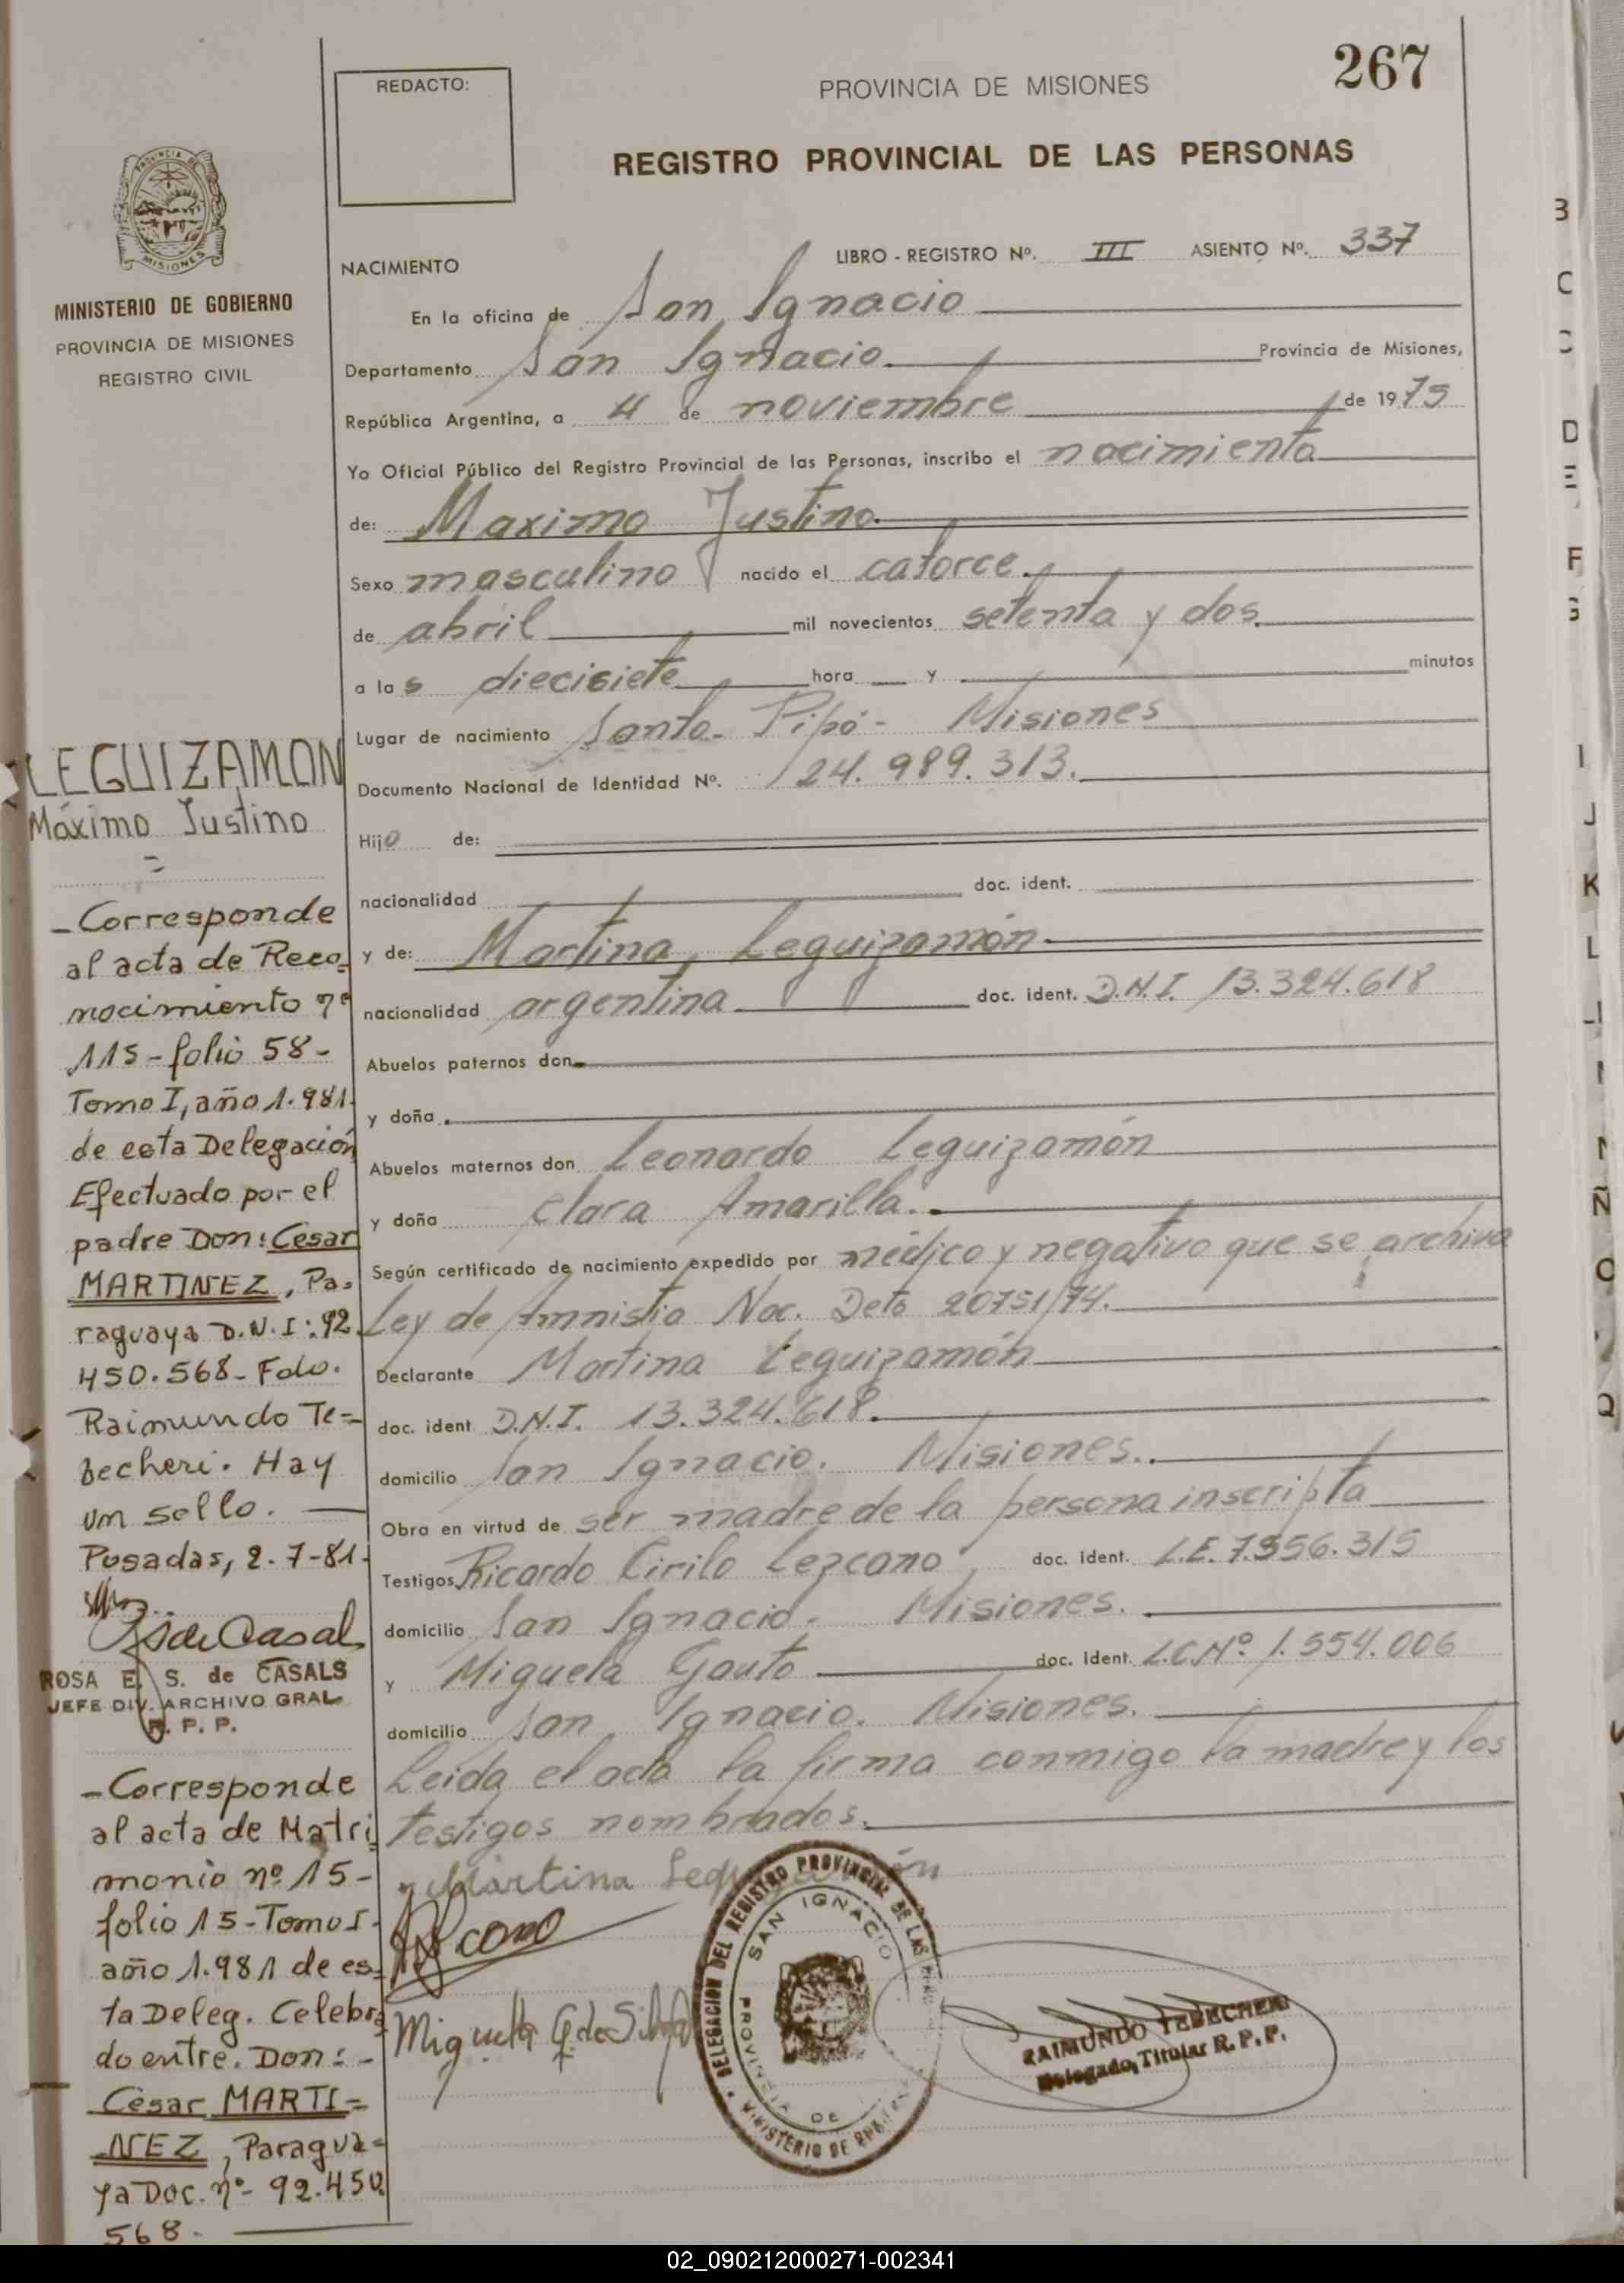 267
REDACTO:
PROVINCIA DE MISIONES
REGISTRO PROVINCIAL DE LAS PERSONAS
PROVINCIA DE
MISIONES
MINISTERIO DE GOBIERNO
PROVINCIA DE MISIONES
REGISTRO CIVIL
NACIMIENTO
LIBRO - REGISTRO Nº. III ASIENTO Nº. 337
En la oficina de San Ignacio
Departamento San Ignacio. Provincia de Misiones,
República Argentina, a 4 de noviembre de 1975
Yo Oficial Público del Registro Provincial de las Personas, inscribo el nacimiento
de: Maximo Justino.
Sexo masculino nacido el catorce.
de abril mil novecientos setenta y dos.
a las diecisiete hora y minutos
Lugar de nacimiento Santo Pipó - Misiones
Documento Nacional de Identidad Nº. 24.989.313.
Hijo de:
nacionalidad doc. ident.
y de: Martina Leguizamón.
nacionalidad argentina doc. ident. D.N.I. 13.324.618
Abuelos paternos don
y doña
Abuelos maternos don Leonardo Leguizamón
y doña Clara Amarilla.
Según certificado de nacimiento expedido por médico y negativo que se archiva
Ley de Amnistia Nac. Deto 20751/74.
Declarante Martina Leguizamón
doc. ident D.N.I. 13.324.618.
domicilio San Ignacio. Misiones.
Obra en virtud de ser madre de la persona inscripta
Testigos Ricardo Cirilo Lezcano doc. ident. L.E. 7.556.315
domicilio San Ignacio. Misiones.
y Miguela Gauto doc. ident. L.C.Nº 1.554.006
domicilio San Ignacio. Misiones.
Leida el acta la firma conmigo la madre y los
testigos nombrados.
Martina
Miguela G. de Silva
DELEGACION DEL REGISTRO PROVINCIAL DE LAS
SAN IGNACIO
PROVINCIA DE
MINISTERIO DE
RAIMUNDO TEBECHERI
Delegado Titular R. P. P.
LEGUIZAMON
Máximo Justino
=
- Corresponde
al acta de Reco-
nocimiento nº
115 - folio 58 -
Tomo I, año 1.981.
de esta Delegación
Efectuado por el
padre Don: César
MARTINEZ, Pa-
raguaya D.N.I: 92.
450.568 - Fdo.
Raimundo Te-
becheri. Hay
un sello.
Posadas, 2-7-81-
S de Casals
ROSA E. S. de CASALS
JEFE DIV. ARCHIVO GRAL
R. P. P.
- Corresponde
al acta de Matri
monio nº 15 -
folio 15 - Tomo I -
año 1.981 de es-
ta Deleg. Celebra
do entre. Don: -
César MARTI-
NEZ, Paragua-
ya Doc. nº 92.450.
568.
B
C
D
E
F
G
I
J
K
L
Ñ
O
Q
02_090212000271-002341